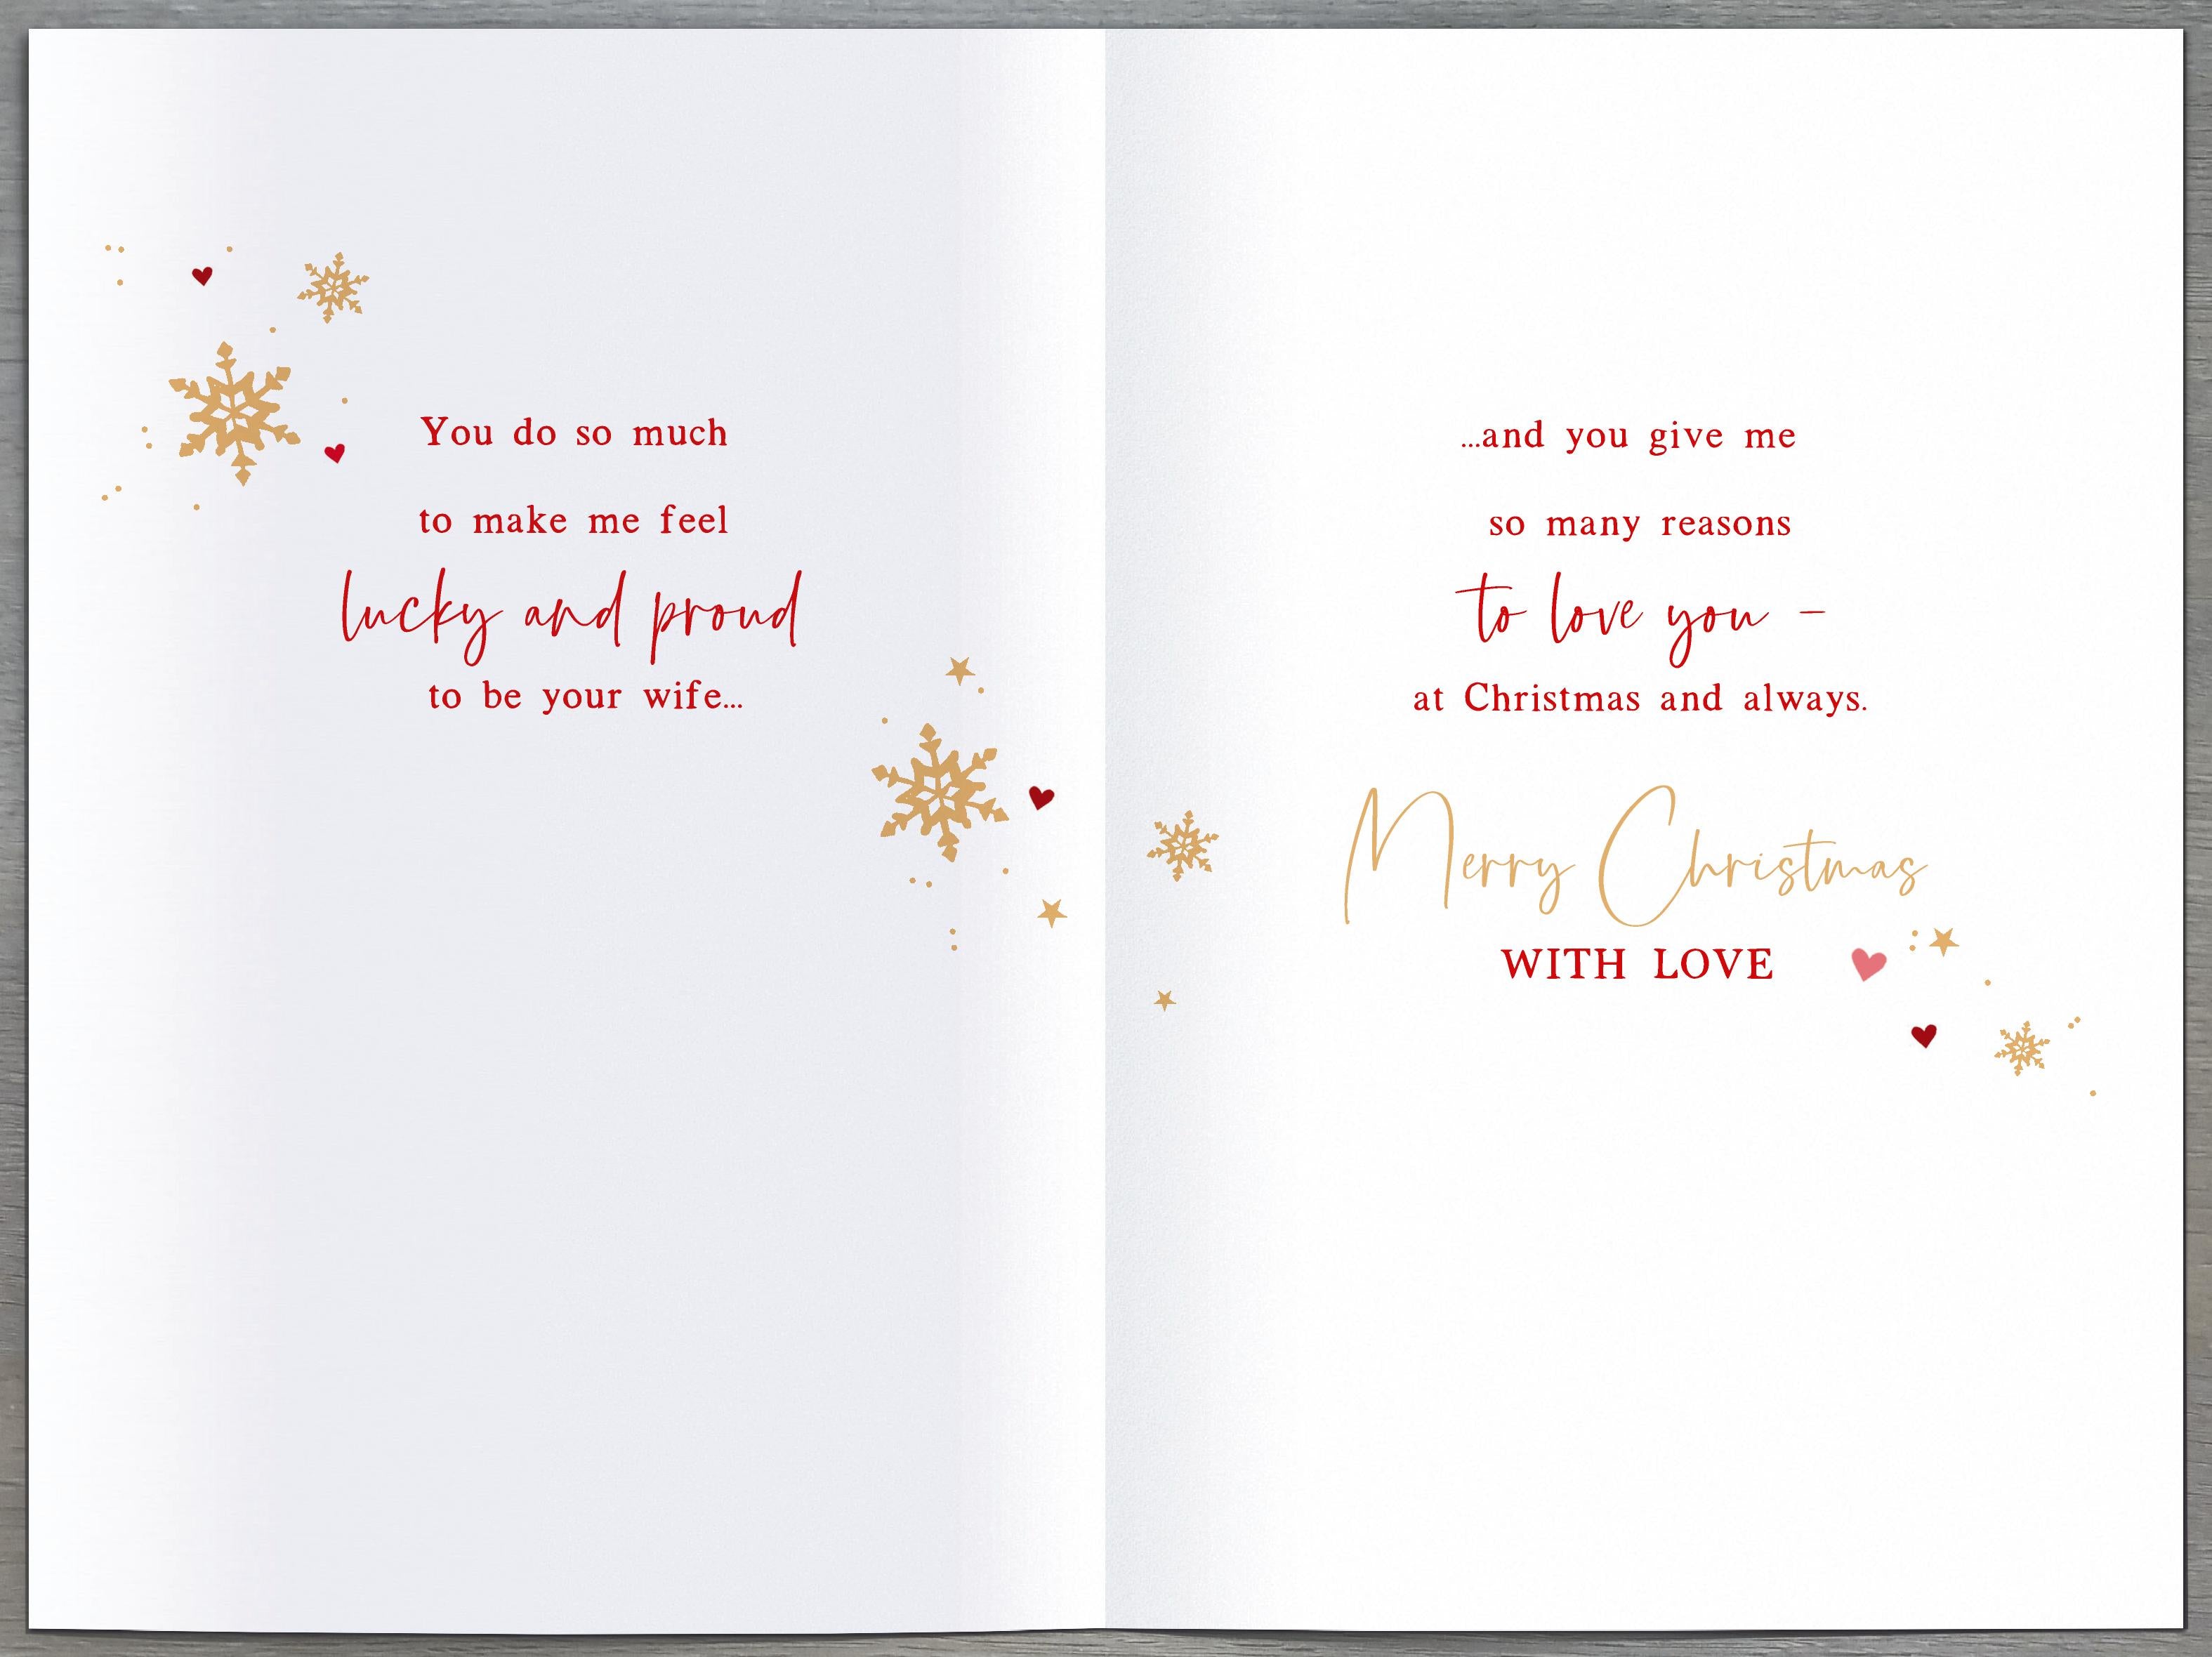 You do so much
to make me feel
lucky and proud
to be your wife...
...and you give me
so many reasons
to love you –
at Christmas and always.
Merry Christmas
WITH LOVE